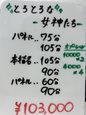 とろとろな
ー女神たちー
パネル… 75分
105分
10000
×3
本指名… 105分
4000
×4
90分
パネル… 60分
90分
¥103,000